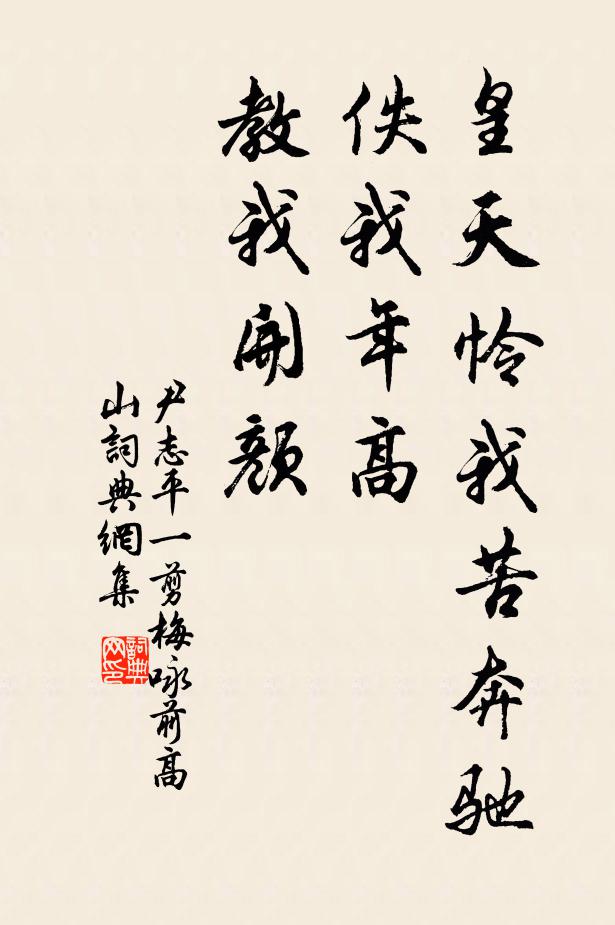 皇天怜我苦奔驰
佚我年高
教我開顔
尹志平一剪梅咏前高
山詞典網集
詞典
网印